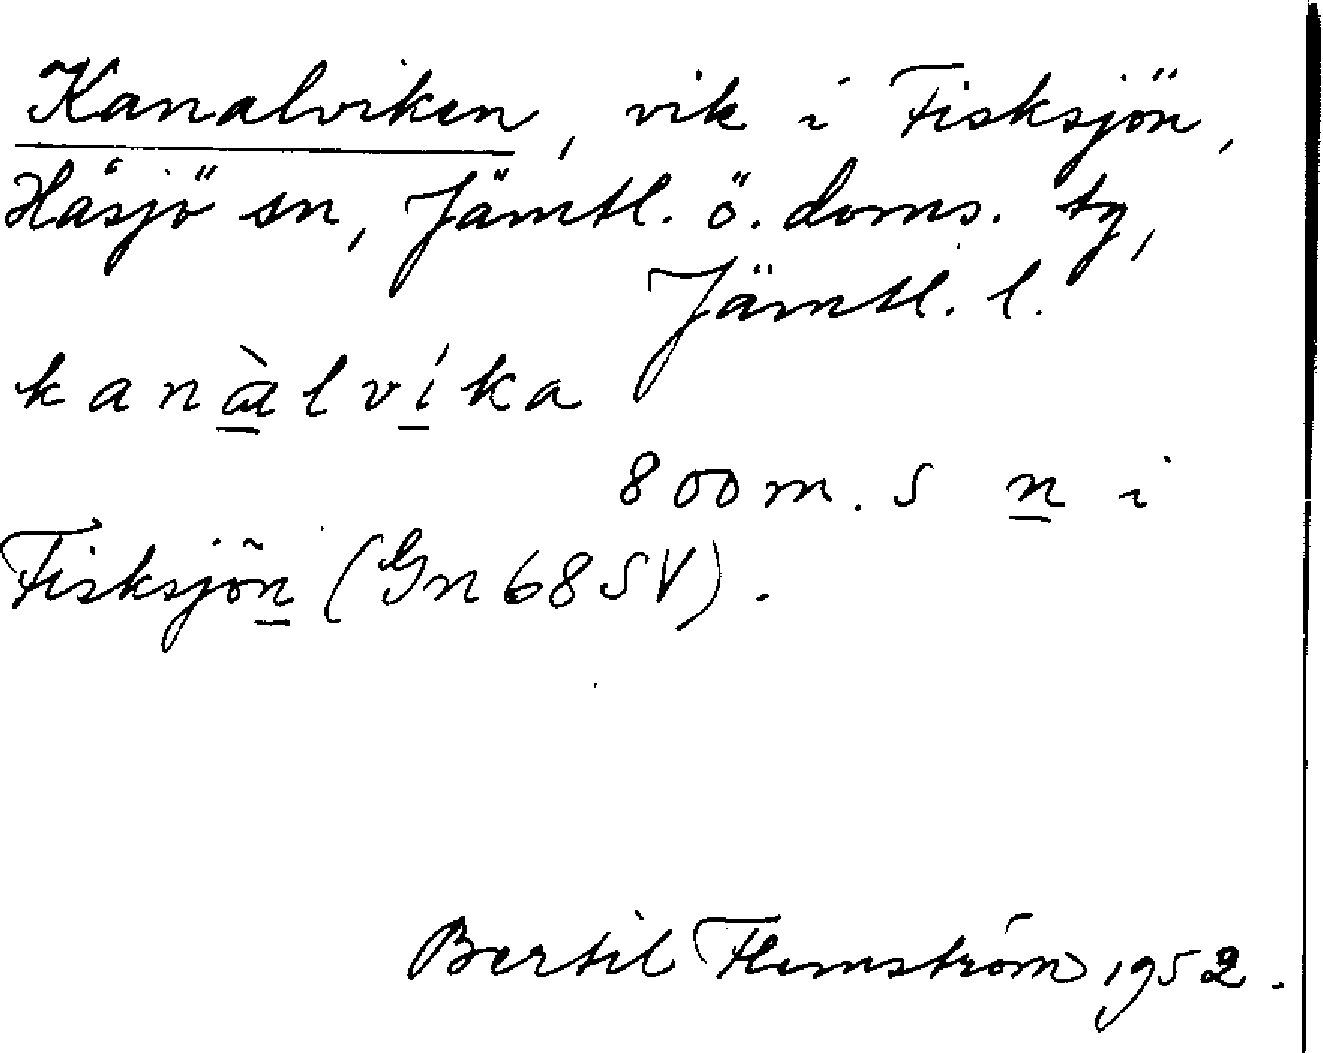 Kanalviken, vik i Fisksjön,
Håsjö sn, Jämtl. ö. doms. tg,
Jämtl. l.
kanàlvíka
800 m. S n i
Fisksjön (Gn 68 SV).
Bertil Flemström 1952.